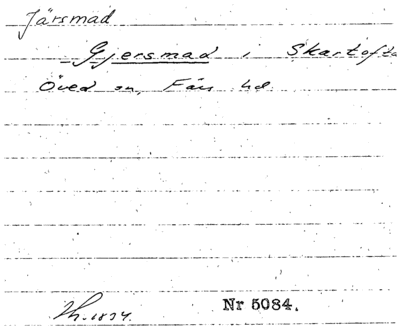 Järsmad
Gjersmad i Skartofta
Öved sn, Färs hd.
Th. 1834.
Nr 5084.